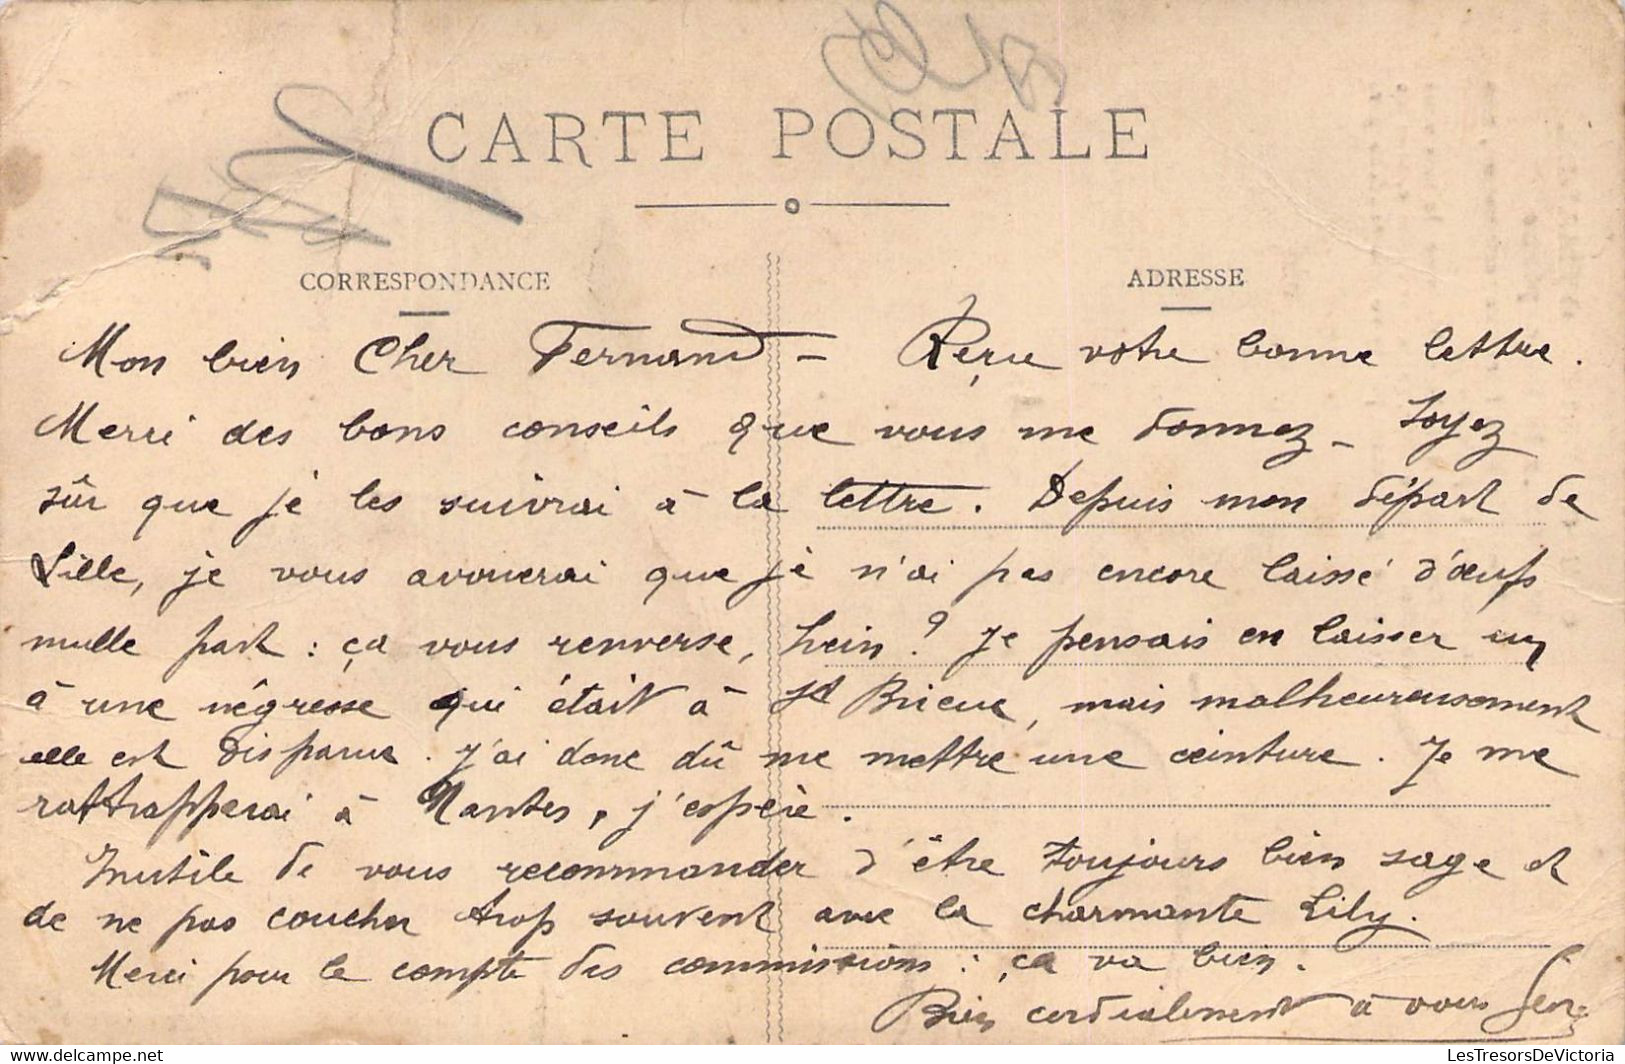 CARTE POSTALE
CORRESPONDANCE
ADRESSE
Mon bien Cher Fernand – Reçu votre bonne lettre.
Merci des bons conseils que vous me donnez – Soyez
sûr que je les suivrai à la lettre. Depuis mon départ de
Lille, je vous avouerai que je n'ai pas encore laissé d'œufs
nulle part : ça vous renverse, hein ? Je pensais en laisser un
à une négresse qui était à St Brieuc, mais malheureusement
elle est disparue. J'ai donc dû me mettre une ceinture. Je me
rattrapperai à Nantes, j'espère.
Inutile de vous recommander d'être toujours bien sage et
de ne pas coucher trop souvent avec la charmante Lily.
Merci pour le compte des commissions : ça va bien.
Bien cordialement à vous
LesTresorsDeVictoria